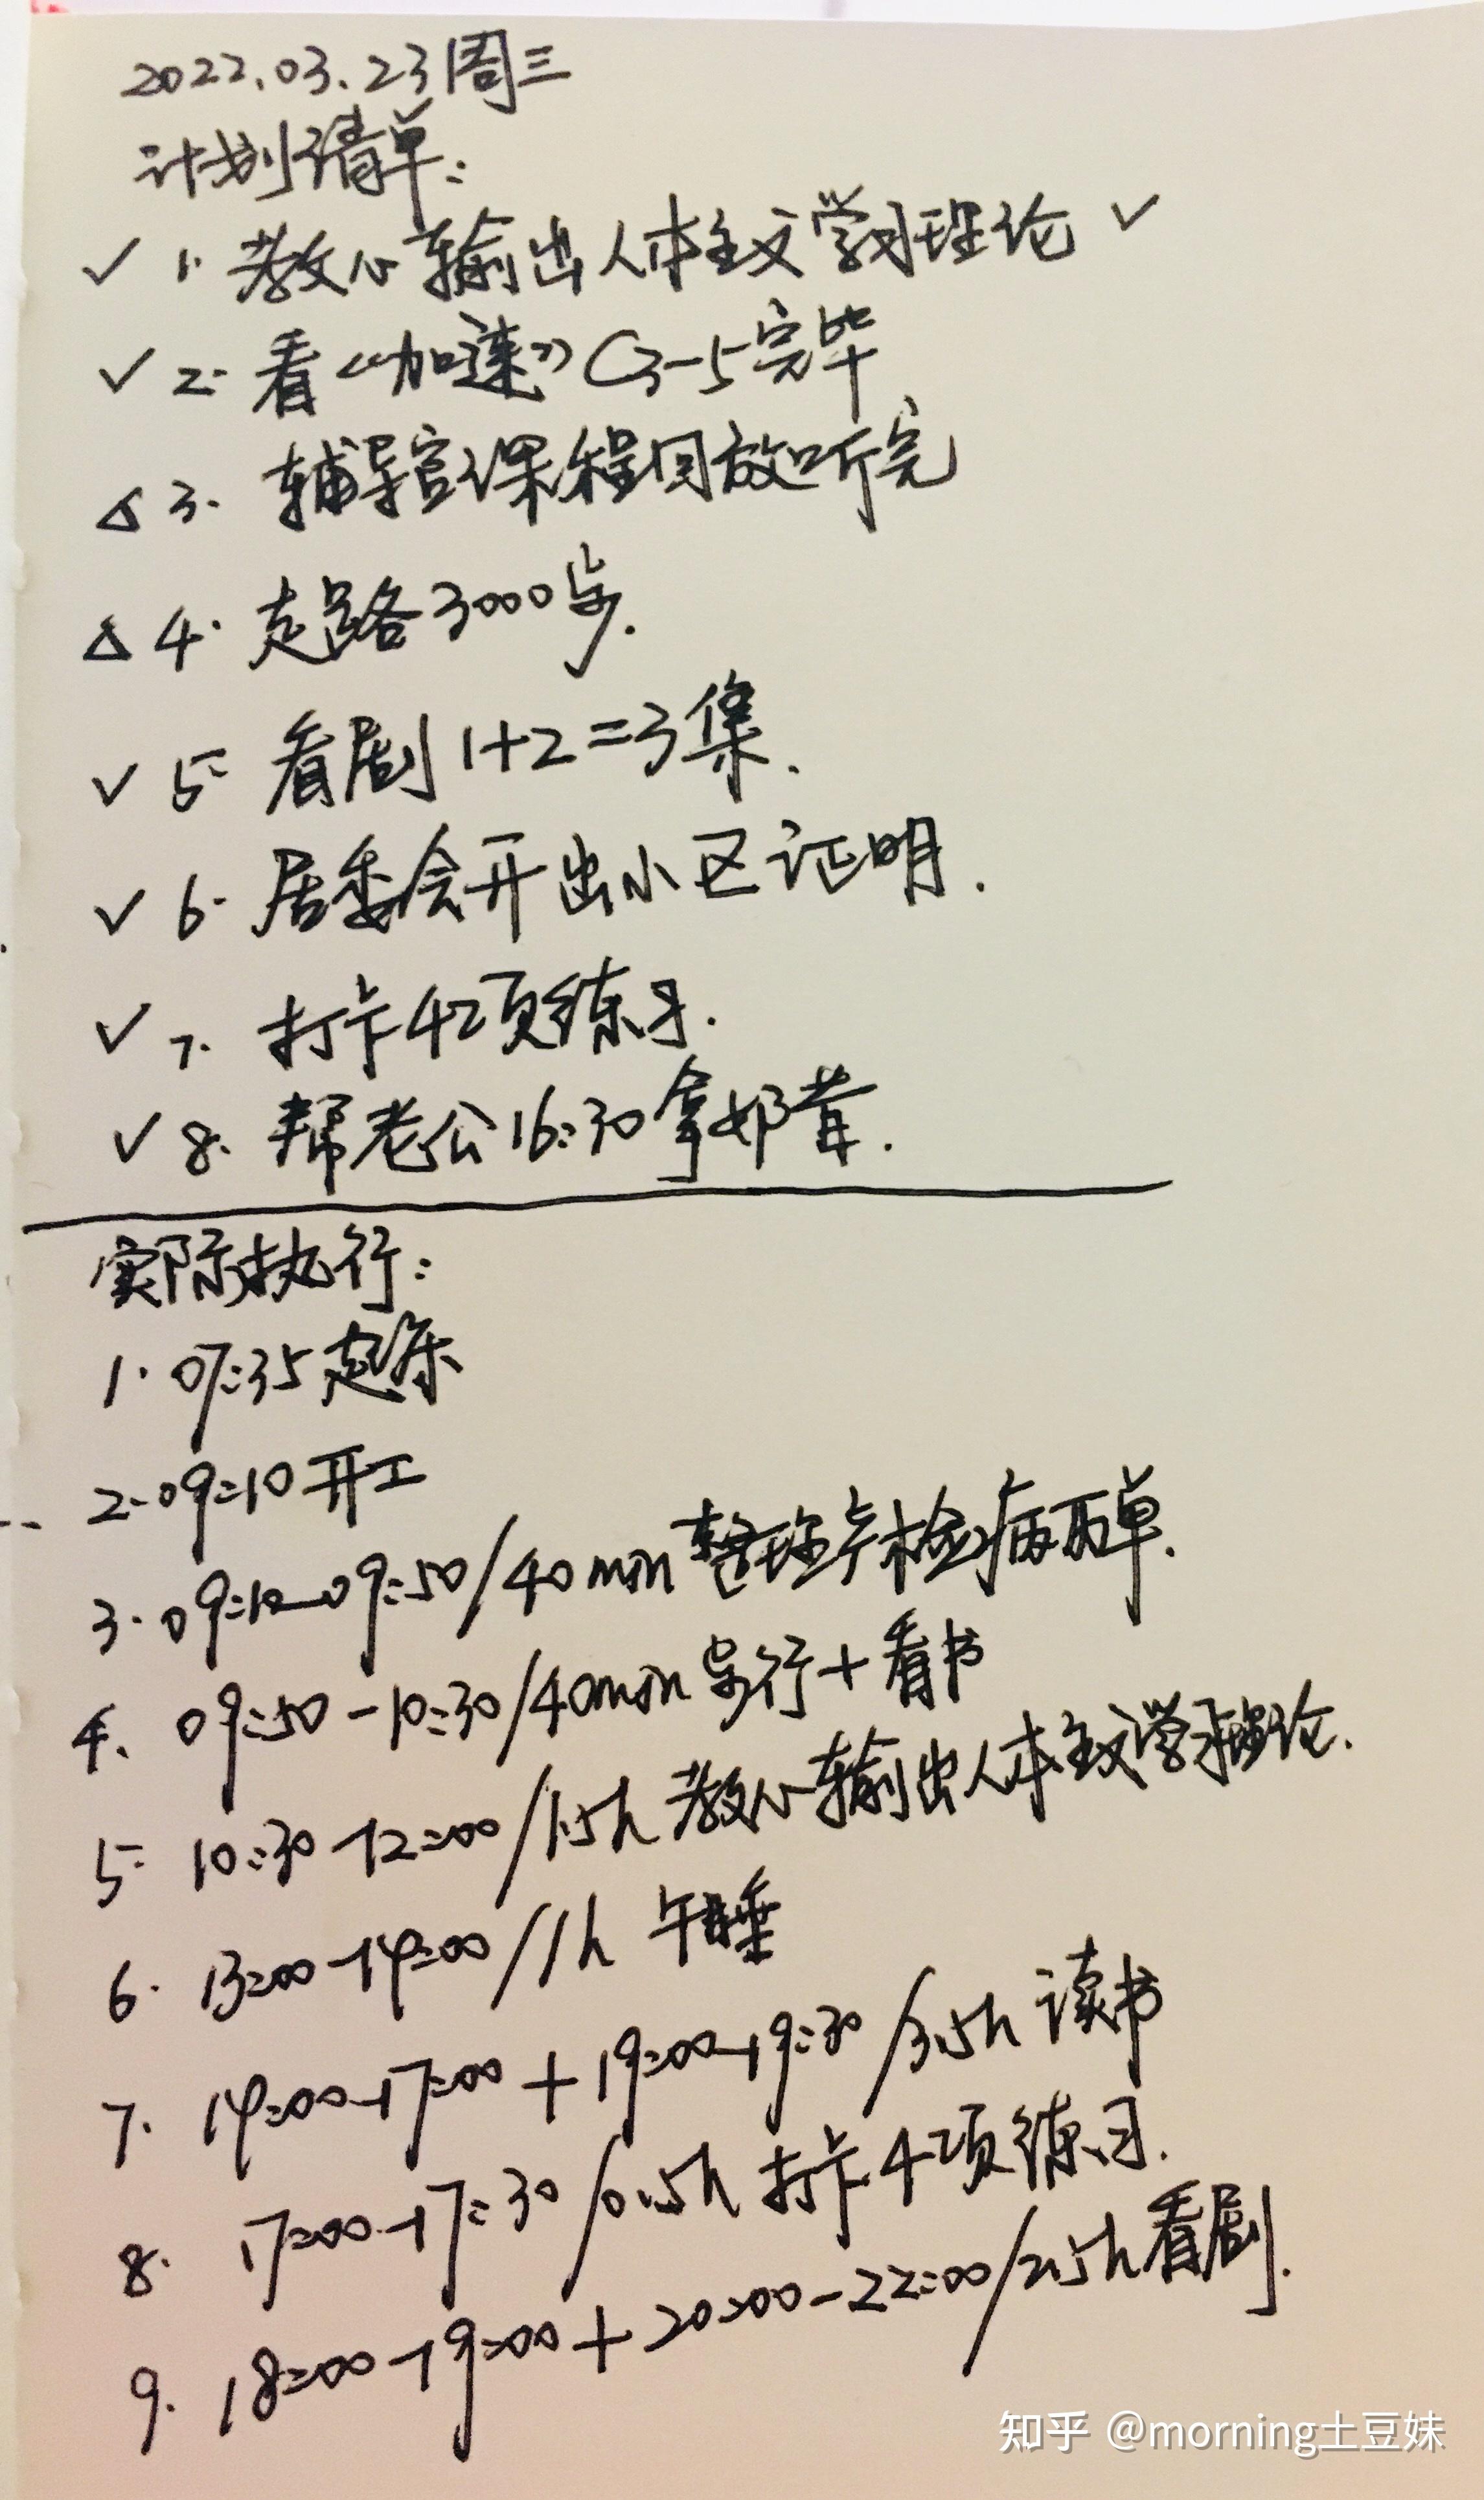 2022.03.23周三
计划清单:
✓ 1. 教心输出人本主义学习理论 ✓
✓ 2. 看《加速》C3-5完毕
△ 3. 辅导官课程回放听完
△ 4. 走路3000步.
✓ 5. 看剧1+2=3集.
✓ 6. 居委会开出小区证明.
✓ 7. 打卡4项练习.
✓ 8. 帮老公16:30拿奶茸.
实际执行:
1. 07:35起床
2. 09:10开工
3. 09:10-09:50/40min整理 检病历单.
4. 09:50-10:30/40min步行+看书
5. 10:30-12:00/1.5h教心输出人本主义学习理论.
6. 13:00-14:00/1h 午睡
7. 14:00-17:00+19:00-19:30/3.5h 读书
8. 17:00-17:30/0.5h 打卡4项练习.
9. 18:00-19:00+20:00-22:00/2.5h看剧.
知乎 @morning土豆妹